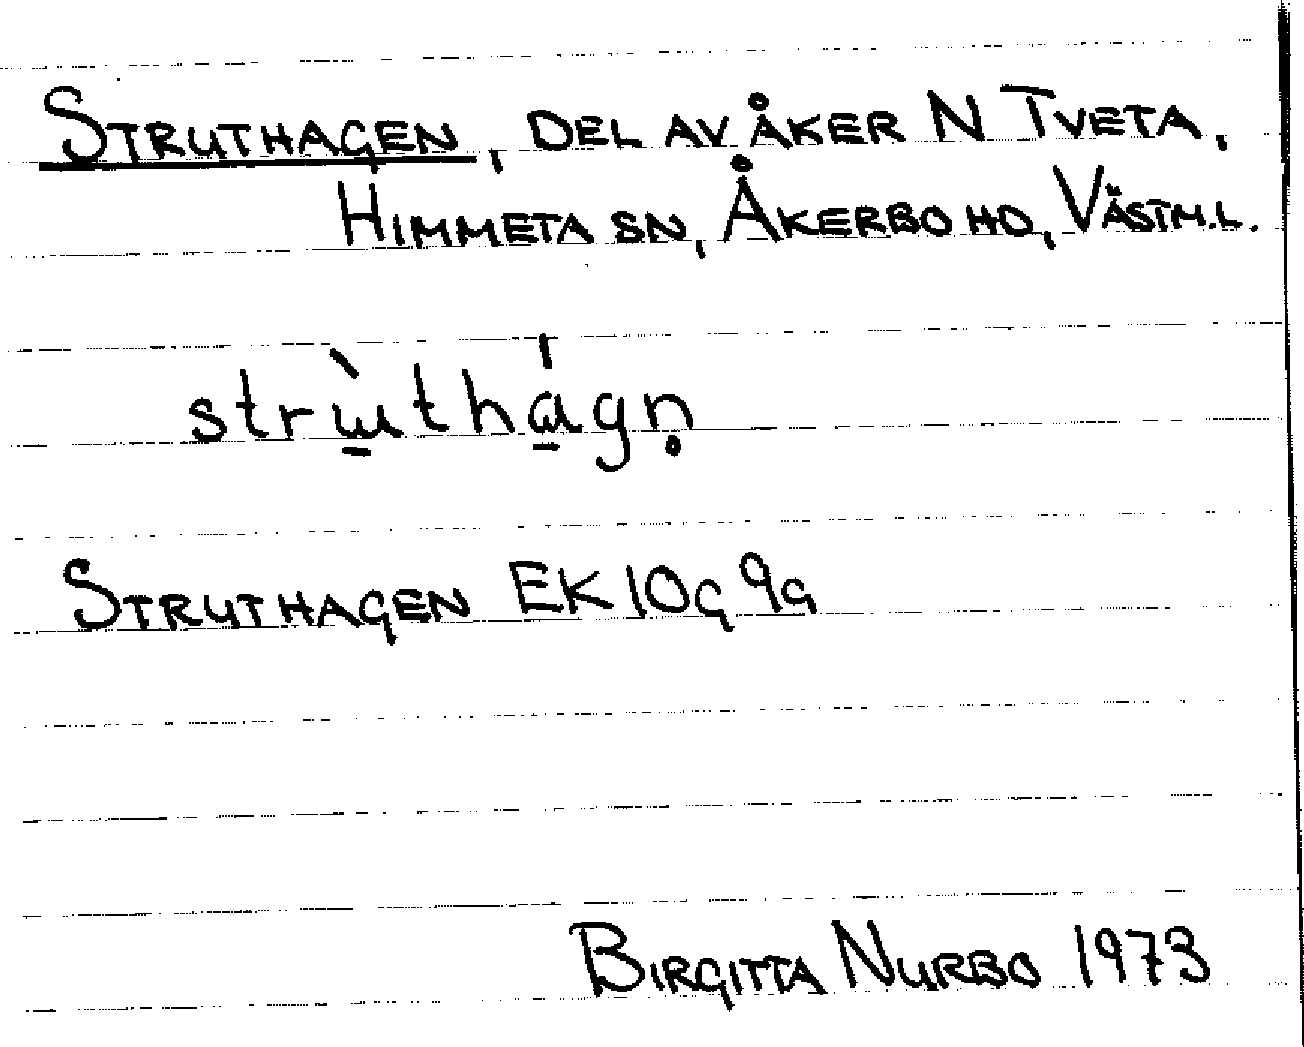 STRUTHAGEN, DEL AV ÅKER N TVETA,
HIMMETA SN, ÅKERBO HD, VÄSTM.L.
STRUTHAGEN EK 10G 9G
BIRGITTA NURBO 1973